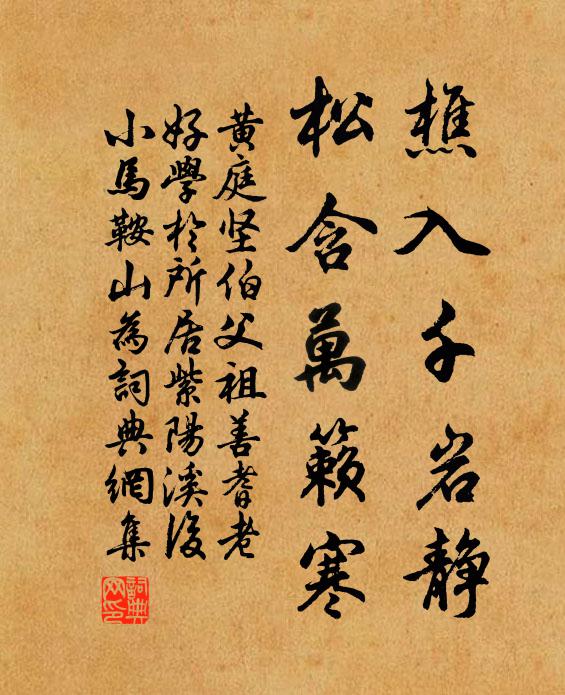 樵入千岩静
松含萬籟寒
黄庭坚伯父祖善耆老
好學於所居紫陽溪後
小馬鞍山為詞典網集
詞典网印